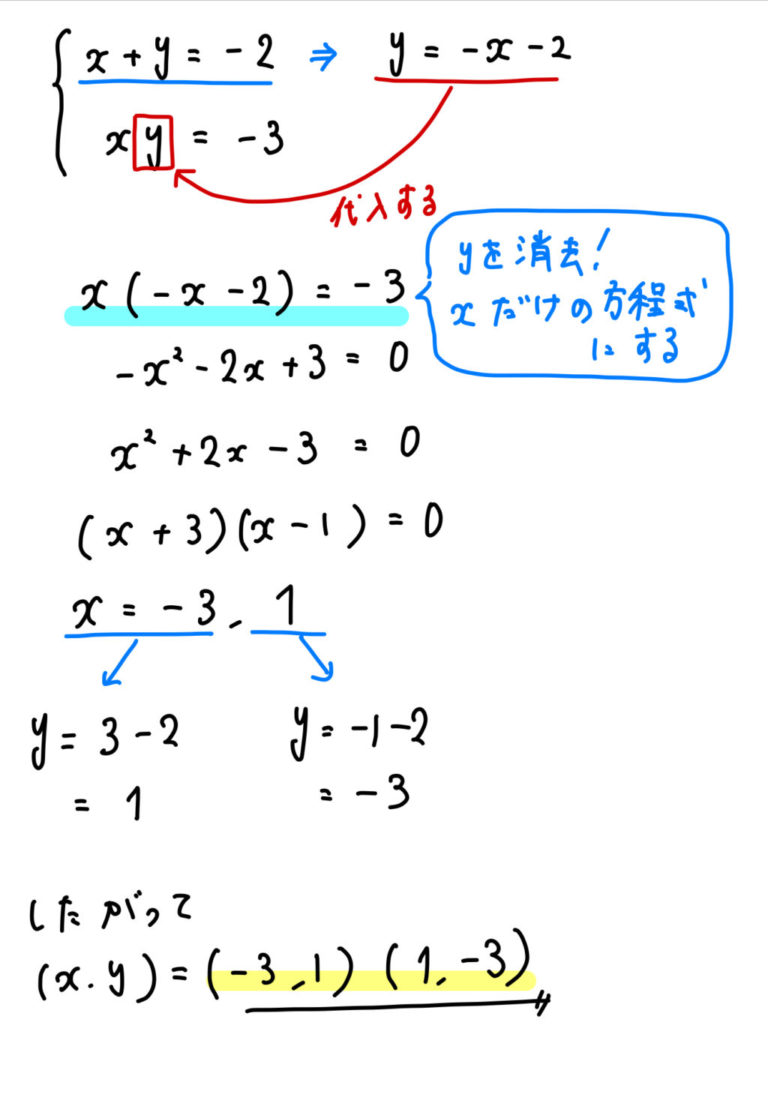 x + y = -2 ⇒ y = -x-2
xy = -3
代入する
yを消去!
xだけの方程式
にする
x(-x-2) = -3
-x²-2x+3 = 0
x²+2x-3 = 0
(x+3)(x-1) = 0
x = -3, 1
y = 3-2
= 1
y = -1-2
= -3
したがって
(x.y) = (-3,1) (1,-3)